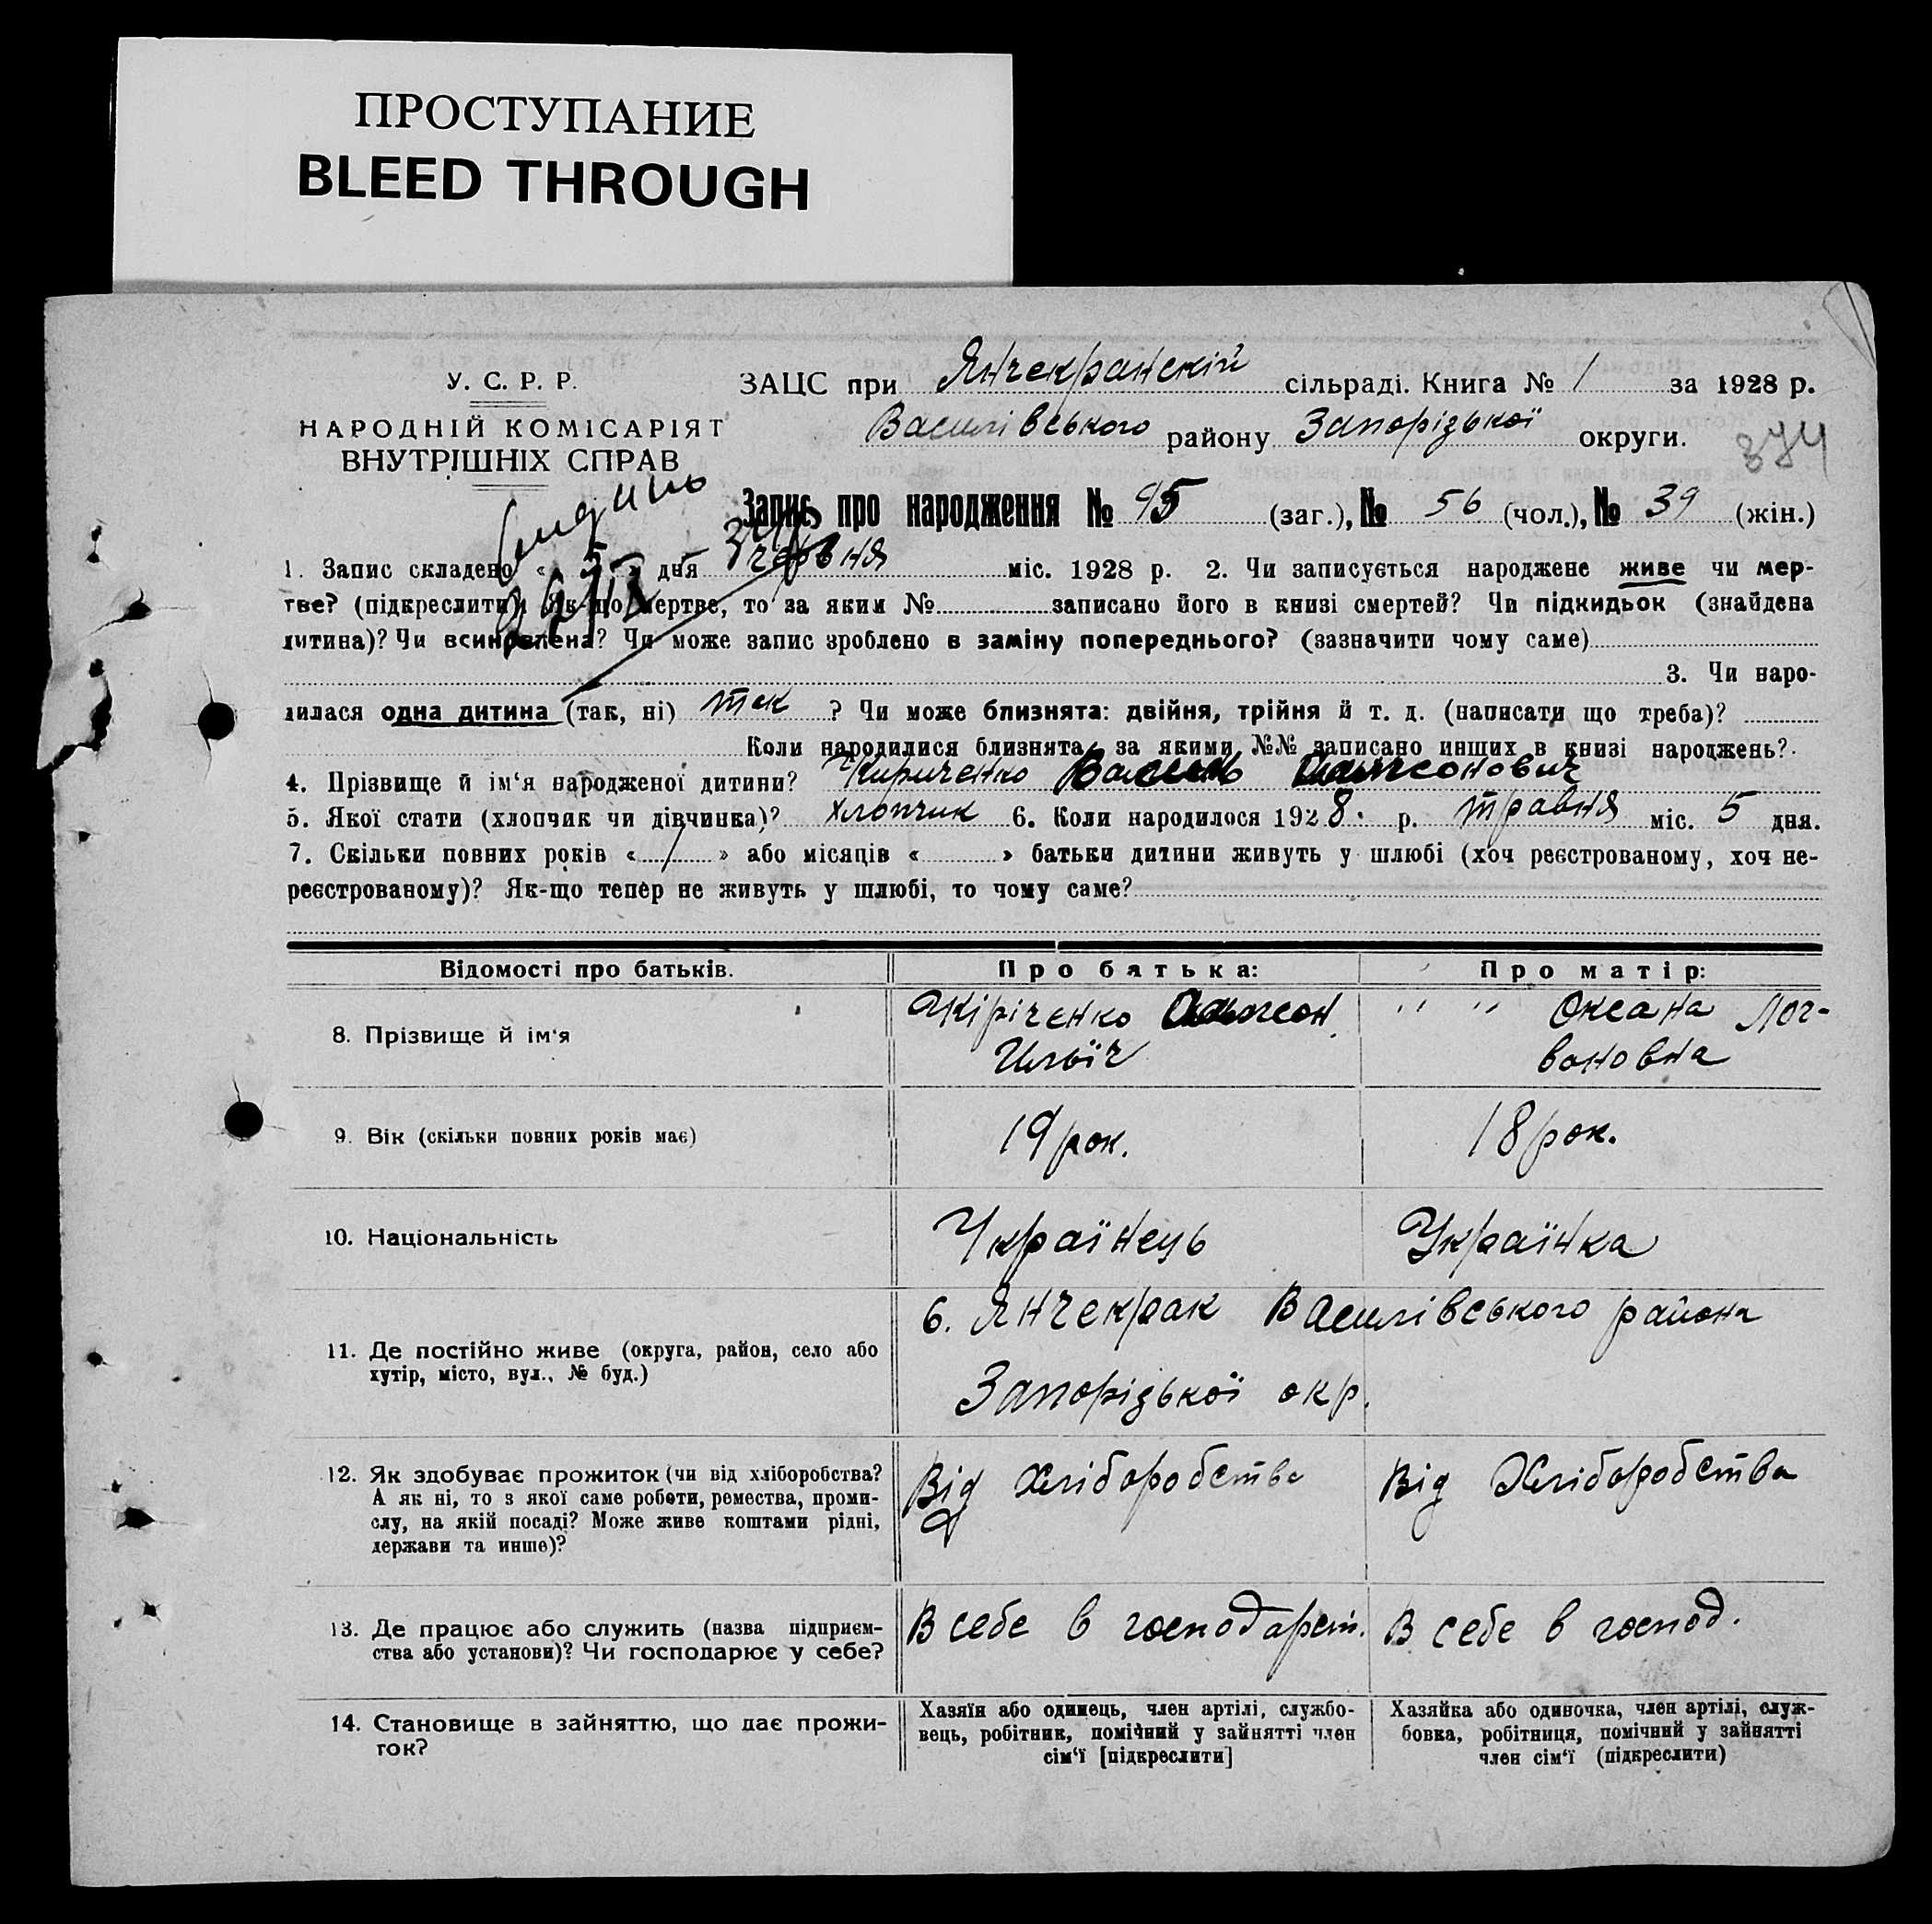 ПРОСТУПАНИЕ
BLEED THROUGH
У. С. Р. Р.
НАРОДНІЙ КОМІСАРІЯТ
ВНУТРІШНІХ СПРАВ
ЗАЦС при Янчекракскій сільраді. Книга № 1 за 1928 р.
Василівського району Запорізької округи.
374
Запис про народження № 95 (заг.), № 56 (чол.), № 39 (жін.)
1. Запис складено « 5 » дня червня міс. 1928 р. 2. Чи записується народжене живе чи мер-
тве? (підкреслити). Як-що мертве, то за яким № записано його в книзі смертей? Чи підкидьок (знайдена
дитина)? Чи всиновлена? Чи може запис зроблено в заміну попереднього? (зазначити чому саме)
3. Чи наро-
дилася одна дитина (так, ні) так ? Чи може близнята: двійня, трійня й т. д. (написати що треба)?
Коли народилися близнята, за якими №№ записано инших в книзі народжень?
4. Прізвище й ім‘я народженої дитини? Кириченко Василь
5. Якої стати (хлопчик чи дівчинка)? хлопчик 6. Коли народилося 1928. р. травня міс. 5 дня.
7. Скільки повних років « 1 » або місяців « » батьки дитини живуть у шлюбі (хоч реєстрованому, хоч не-
реєстрованому)? Як-що тепер не живуть у шлюбі, то чому саме?
Відомості про батьків.
Про батька:
Про матір:
8. Прізвище й ім‘я
Кіріченко
Ильїч
" " Оксана Лог-
воновна
9. Вік (скільки повних років має)
19 рок.
18 рок.
10. Національність
Українець
Українка
11. Де постійно живе (округа, район, село або
хутір, місто, вул., № буд.)
с. Янчекрак Василівського района
Запорізької окр.
12. Як здобуває прожиток (чи від хліборобства?
А як ні, то з якої саме роботи, ремества, проми-
слу, на якій посаді? Може живе коштами рідні,
держави та инше)?
Від Хліборобства
Від Хліборобства
13. Де працює або служить (назва підприєм-
ства або установи)? Чи господарює у себе?
В себе в господарст.
В себе в господ.
14. Становище в зайняттю, що дає прожи-
ток?
Хазяїн або одинець, член артілі, службо-
вець, робітник, помічний у зайнятті член
сім‘ї [підкреслити]
Хазяйка або одиночка, член артілі, служ-
бовка, робітниця, помічний у зайнятті
член сім‘ї (підкреслити)